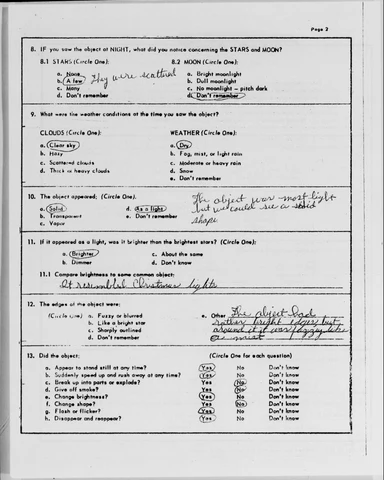 Page 2
8. IF you saw the object at NIGHT, what did you notice concerning the STARS and MOON?
8.1 STARS (Circle One): 8.2 MOON (Circle One):
a. None a. Bright moonlight
b. A few They were scattered b. Dull moonlight
c. Many c. No moonlight – pitch dark
d. Don't remember d. Don't remember
9. What were the weather conditions at the time you saw the object?
CLOUDS (Circle One): WEATHER (Circle One):
a. Clear sky a. Dry
b. Hazy b. Fog, mist, or light rain
c. Scattered clouds c. Moderate or heavy rain
d. Thick or heavy clouds d. Snow
e. Don't remember
10. The object appeared: (Circle One): The object was most light
a. Solid d. As a light but we could see a solid
b. Transparent e. Don't remember shape
c. Vapor
11. If it appeared as a light, was it brighter than the brightest stars? (Circle One):
a. Brighter c. About the same
b. Dimmer d. Don't know
11.1 Compare brightness to some common object:
It resembled Christmas lights
12. The edges of the object were:
(Circle One) a. Fuzzy or blurred e. Other The object had
b. Like a bright star rather bright edges but
c. Sharply outlined around it it was fuzzy like
d. Don't remember a mist
13. Did the object: (Circle One for each question)
a. Appear to stand still at any time? Yes No Don't know
b. Suddenly speed up and rush away at any time? Yes No Don't know
c. Break up into parts or explode? Yes No Don't know
d. Give off smoke? Yes No Don't know
e. Change brightness? Yes No Don't know
f. Change shape? Yes No Don't know
g. Flash or flicker? Yes No Don't know
h. Disappear and reappear? Yes No Don't know